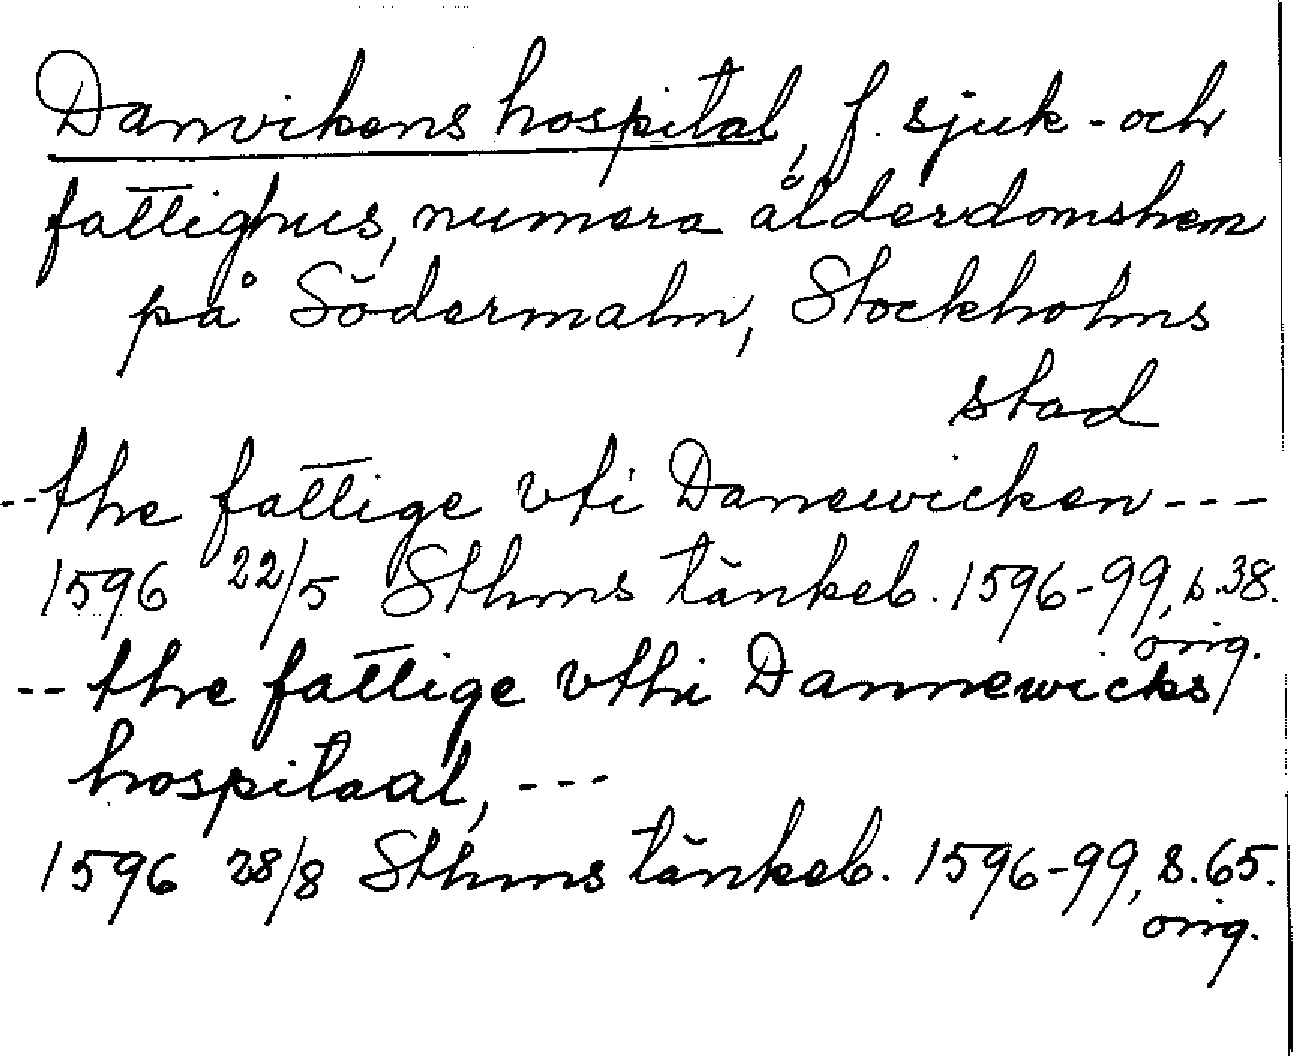 Danvikens hospital, f. sjuk- och
fattighus, numera ålderdomshem
på Södermalm, Stockholms
stad
--the fattige vti Danewicken---
1596 22/5 Sthms tänkeb. 1596-99, s.38.
orig.
--the fattige vthi Dannewicks
hospitaal, ---
1596 28/8 Sthms tänkeb. 1596-99, s.65.
orig.